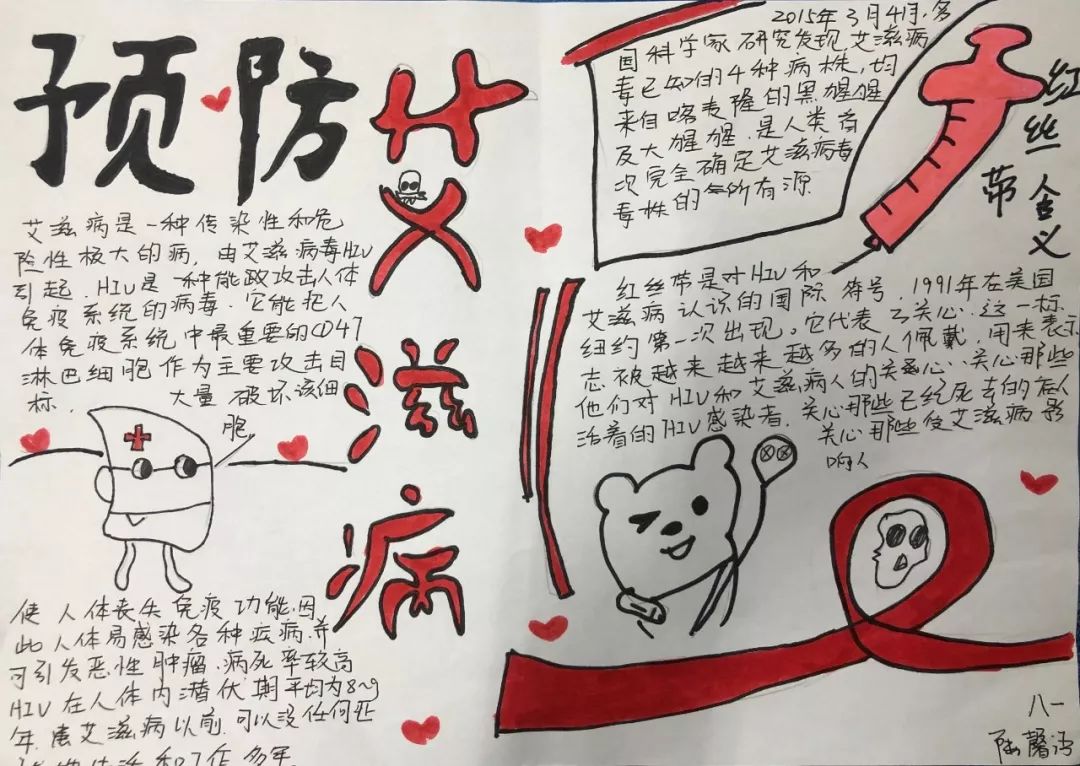 预防艾滋病
艾滋病是一种传染性和危
险性极大的病，由艾滋病毒HIV
引起，HIV是一种能攻击人体
免疫系统的病毒．它能把人
体免疫系统中最重要的CD4T
淋巴细胞作为主要攻击目
标，大量破坏该细
胞
使人体丧失免疫功能．因
此人体易感染各种疾病．并
可引发恶性肿瘤．病死率较高
HIV在人体内潜伏期平均为8~9
年．患艾滋病以前，可以没任何症
生活和工作多年．
2015年3月4日，多
国科学家研究发现，艾滋病
毒已知的4种病株，均
来自喀麦隆的黑猩猩
及大猩猩，是人类首
次完全确定艾滋病毒
毒株的所有源
红丝带含义
红丝带是对HIV和
艾滋病认识的国际符号，1991年在美国
纽约第一次出现。它代表了关心．这一标
志被越来越来越多的人佩戴，用来表示
他们对HIV和艾滋病人的关心、关心那些
活着的HIV感染者，关心那些已经死去的病人
关心那些受艾滋病影
响人
八一
陆馨